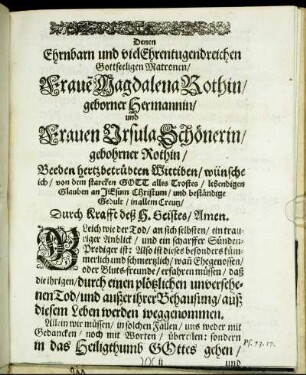 Denen
Ehrnbarn und viel Ehrentugendreichen
Gottseeligen Matronen/
Frauē Magdalena Rothin/
geborner Hermannin/
und
Frauen Ursula Schönerin/
gebohrner Rothin/
Beeden hertzbetrübten Wittiben/ wünsche
ich/ von dem starcken GOTT alles Trostes/ lebendigen
Glauben an JEsum Christum/ und beständige
Gedult/ in allem Creutz/
Durch Krafft deß H. Geistes/ Amen.
GLeich wie der Tod/ an sich selbsten/ ein trau-
riger Anblick/ und ein scharffer Sünden-
Prediger ist: Also ist dieses besonders küm-
merlich und schmertzlich/ wañ Ehegenossen/
oder Bluts-freunde/ erfahren müssen/ daß
die ihrigen/ durch einen plötzlichen unversehe-
nen Tod/ und außer ihrer Behausung/ auß
diesem Leben werden weggenommen.
Allein wir müssen/ in solchen Fällen/ uns weder mit
Gedancken/ noch mit Worten/ übereilen: sondern
in das Heiligthumb GOttes gehen/
Ps. 73. 17.
)( ij
und